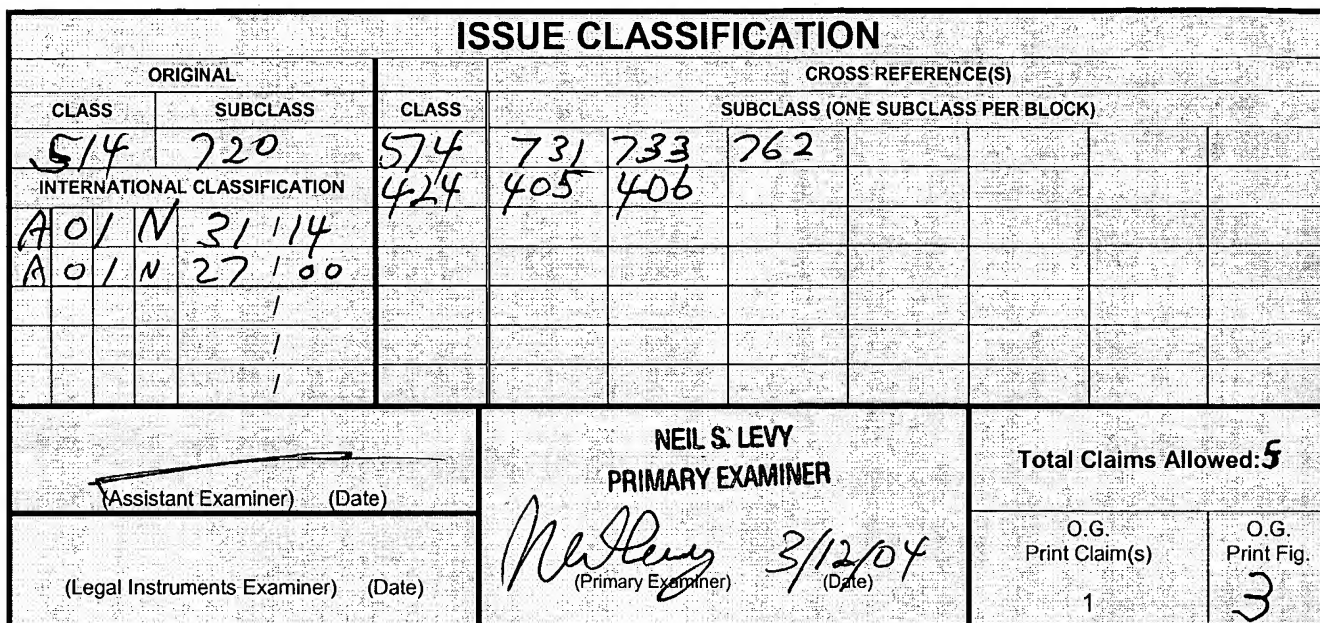 ISSUE CLASSIFICATION
ORIGINAL CROSS REFERENCE(S)
CLASS SUBCLASS CLASS SUBCLASS (ONE SUBCLASS PER BLOCK)
514 720 514 731 733 762
INTERNATIONAL CLASSIFICATION 424 405 406
A 0 1 N 31 / 14
A 0 1 N 27 / 00
/
/
/
(Assistant Examiner) (Date)
(Legal Instruments Examiner) (Date)
NEIL S. LEVY
PRIMARY EXAMINER
Neil Levy 3/12/04
(Primary Examiner) (Date)
Total Claims Allowed: 5
O.G. Print Claim(s)
1
O.G. Print Fig.
3